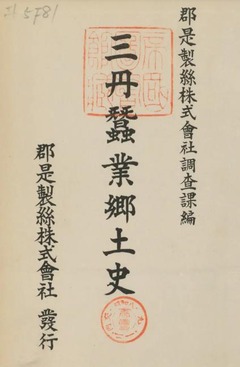 郡是製絲株式會社調査課編
三丹蠶業郷土史
郡是製絲株式會社 發行